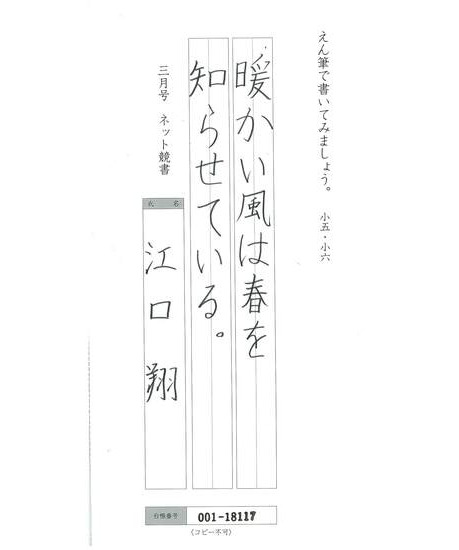 えん筆で書いてみましょう。 小五・小六
暖かい風は春を
知らせている。
三月号 ネット競書
氏名
江口 翔
台帳番号 001-18117
(コピー不可)